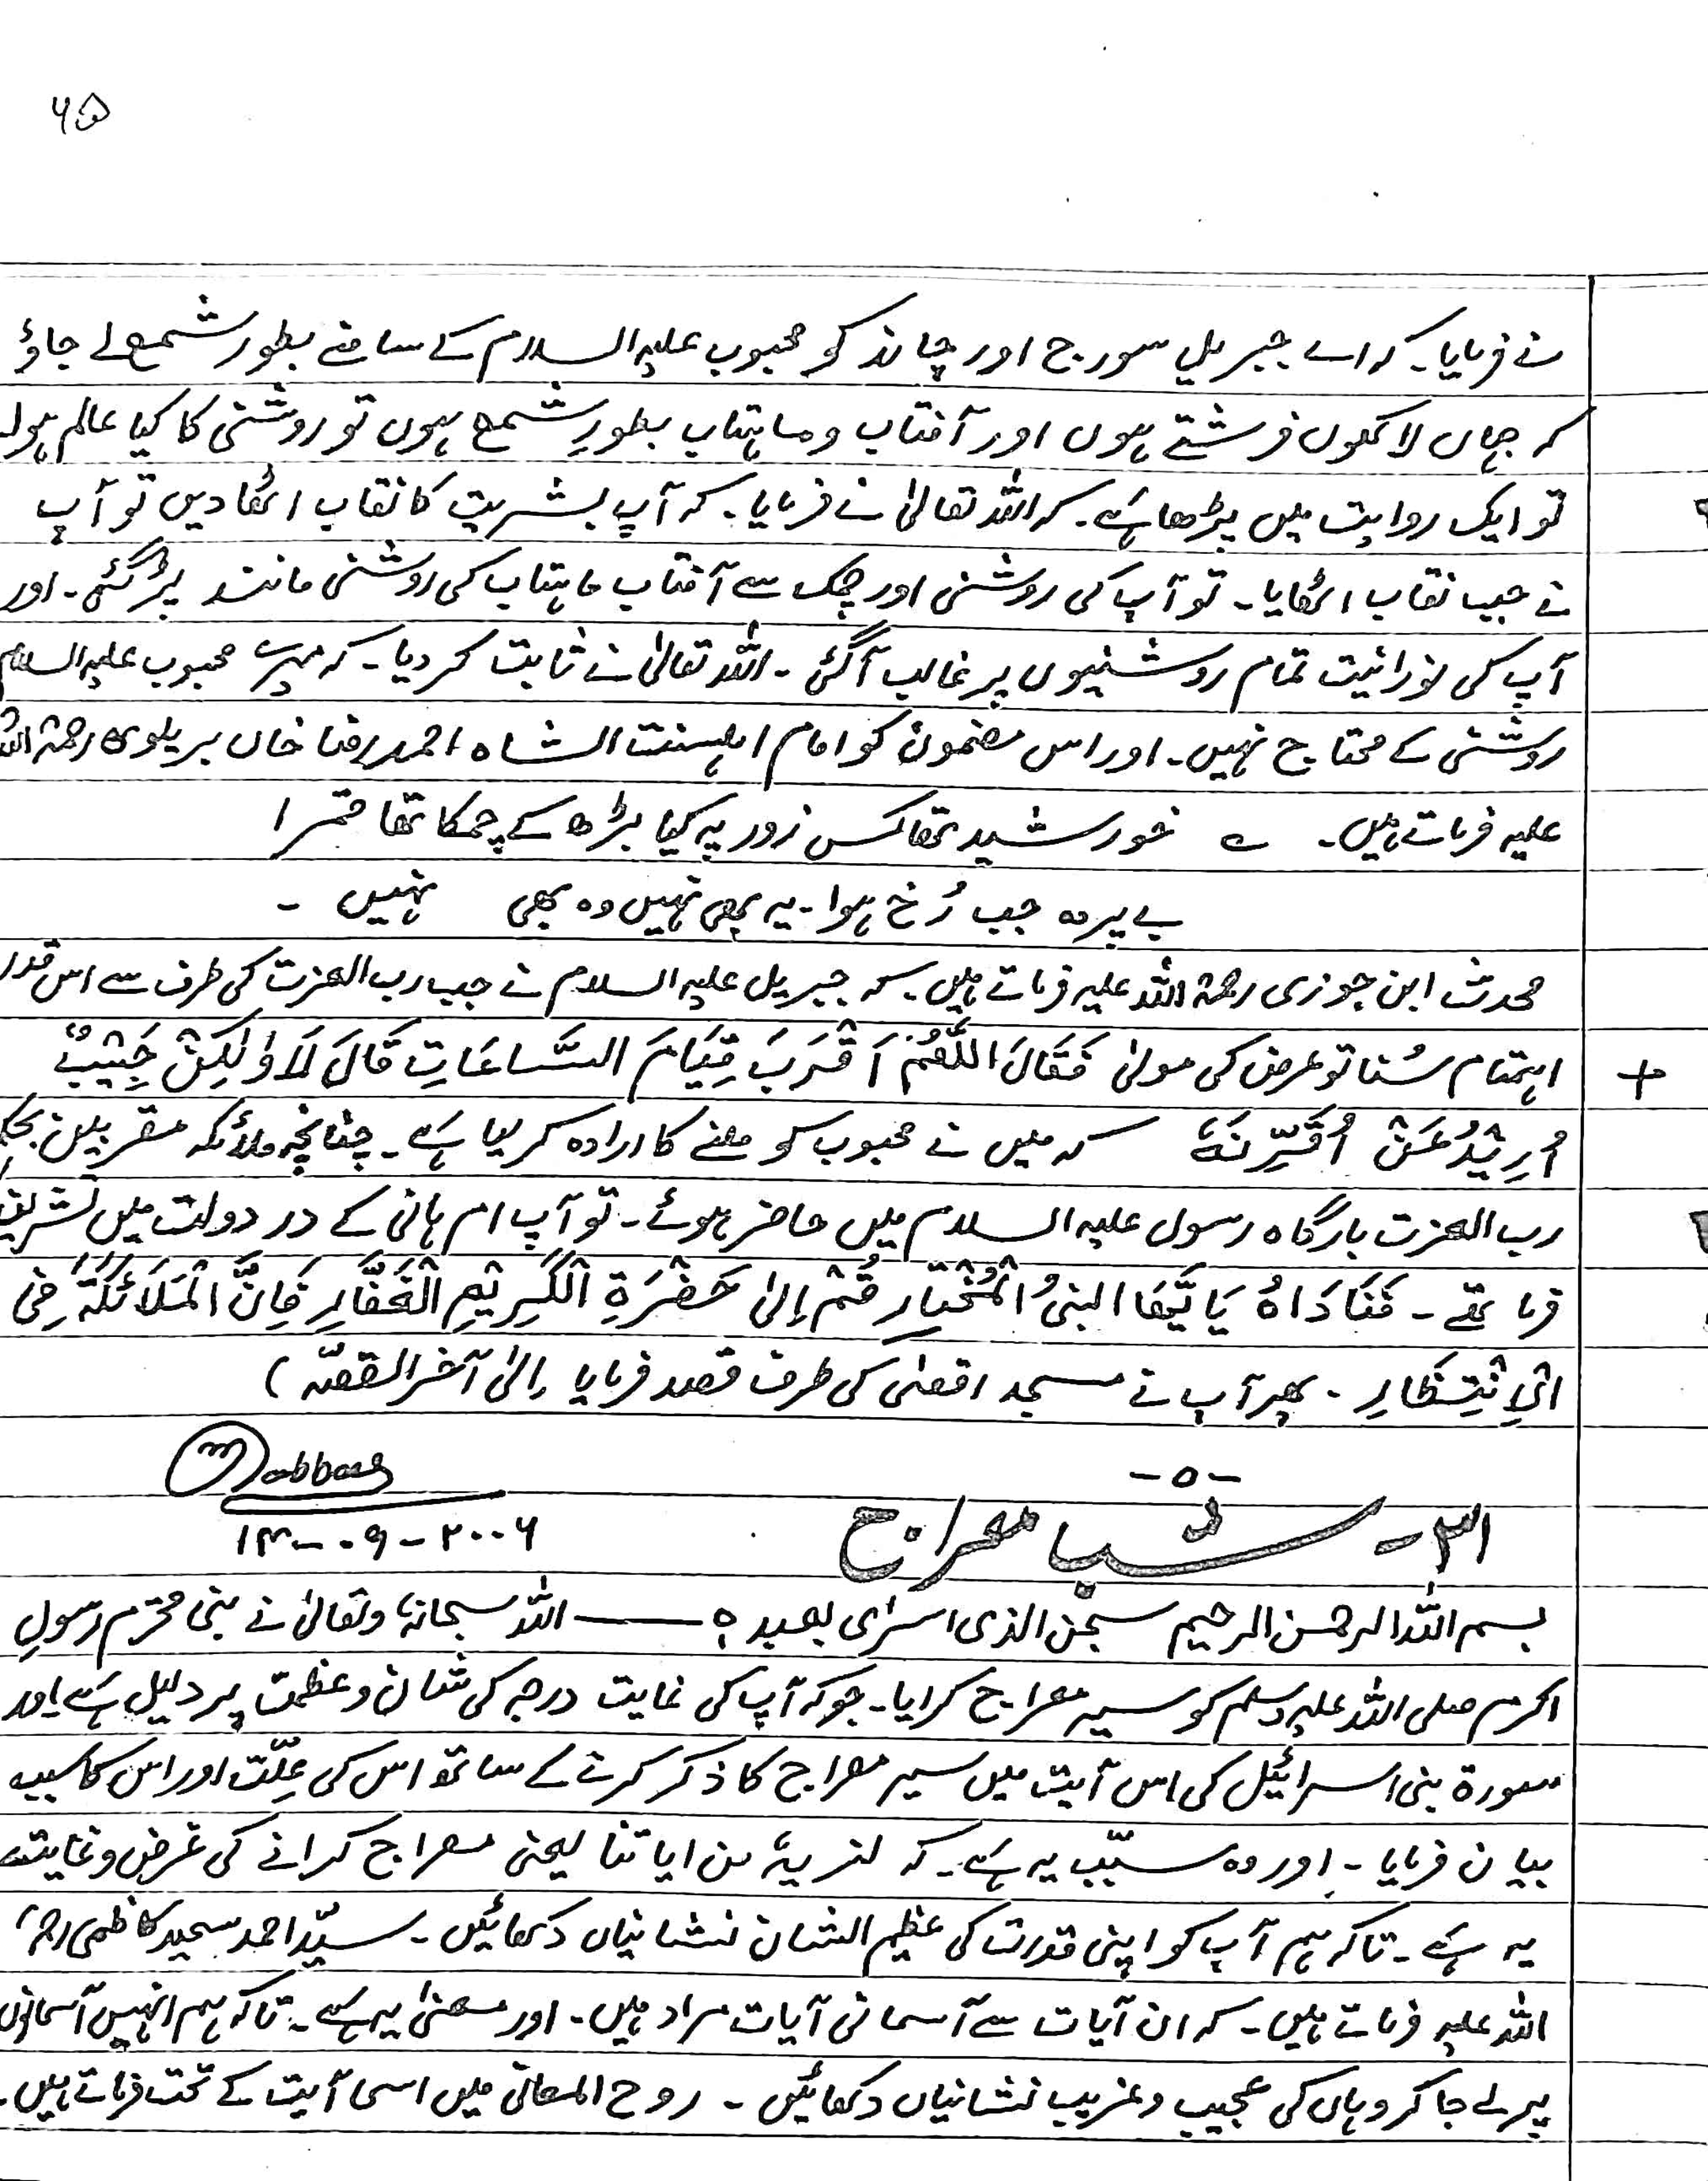 ۶۵
نے فرمایا۔ کہ اے جبریل سورج اور چاند کو محبوب علیہ السلام کے سامنے بطور شمع لے جاؤ
کہ جہاں لاکھوں فرشتے ہوں اور آفتاب و ماہتاب بطورِ شمع ہوں تو روشنی کا کیا عالم ہوا
تو ایک روایت میں پڑھا ہے۔ کہ اللہ تعالیٰ نے فرمایا۔ کہ آپ بشریت کا نقاب اٹھا دیں تو آپ
نے جب نقاب اٹھایا۔ تو آپ کی روشنی اور چمک سے آفتاب ماہتاب کی روشنی مانند پڑ گئی۔ اور
آپ کی نورانیت تمام روشنیوں پر غالب آگئی۔ اللہ تعالیٰ نے ثابت کر دیا۔ کہ میرے محبوب علیہ السلام
روشنی کے محتاج نہیں۔ اور اس مضمون کو امام اہلسنت الشاہ احمد رضا خاں بریلوی رحمۃ اللہ
علیہ فرماتے ہیں۔ ؎ خورشید تھا کس زور پہ کیا بڑھ کے چمکا تھا قمر ا
بے پردہ جب رُخ ہوا۔ یہ بھی نہیں وہ بھی نہیں ۔
محدث ابن جوزی رحمۃ اللہ علیہ فرماتے ہیں۔ کہ جبریل علیہ السلام نے جب رب العزت کی طرف سے اس قدر
اہتمام سُنا تو عرض کی مولیٰ فَقَالَ اَللّٰھُمَّ اَقْرَبَ قِیَامَ السَّاعَاتِ قَالَ لَا وَلٰکِنْ حَبِیْبٌ +
اُرِیْدُ عَنْ اُقَرِّنَہٗ کہ میں نے محبوب کو ملنے کا ارادہ کر لیا ہے۔ چنانچہ ملائکہ مقربین بحکم
رب العزت بارگاہ رسول علیہ السلام میں حاضر ہوئے۔ تو آپ ام ہانی کے در دولت میں تشریف
فرما تھے۔ فَنَادَاہُ یَا یُّھَا النبیُ الْمُخْتَارِ قُمْ اِلیٰ حَضْرَۃِ الْکَرِیْمِ الْغَفَّارِ فَاِنَّ الْمَلَائِکَۃَ فِی
الْاِنْتِظَارِ ۔ پھر آپ نے مسجد اقصٰی کی طرف قصد فرمایا (الیٰ آخر القصّہ)
Mabbas
-۵-
۳۱- شبِ معراج
۱۳-۰۹-۲۰۰۶
بسم اللہ الرحمن الرحیم سبحن الذی اسرٰی بعبدہٖ ــــــ اللہ سبحانہٗ وتعالیٰ نے نبی محترم رسولِ
اکرم صلی اللہ علیہ وسلم کو سیر معراج کرایا۔ جو کہ آپ کی غایت درجہ کی شان و عظمت پر دلیل ہے اور
سورۃ بنی اسرائیل کی اس آیت میں سیر معراج کا ذکر کرنے کے ساتھ اس کی عِلّت اور اس کا سبب
بیان فرمایا۔ اور وہ سبّب یہ ہے۔ کہ لنریہٗ من ایاتنا یعنی معراج کرانے کی غرض و غایت
یہ ہے۔ تاکہ ہم آپ کو اپنی قدرت کی عظیم الشان نشانیاں دکھائیں۔ سیّد احمد سعید کاظمی رحمۃ
اللہ علیہ فرماتے ہیں۔ کہ ان آیات سے آسمانی آیات مراد ہیں۔ اور معنیٰ یہ ہے۔ تاکہ ہم انہیں آسمانوں
پر لے جا کر وہاں کی عجیب و غریب نشانیاں دکھائیں۔ روح المعانی میں اسی آیت کے تحت فرماتے ہیں۔